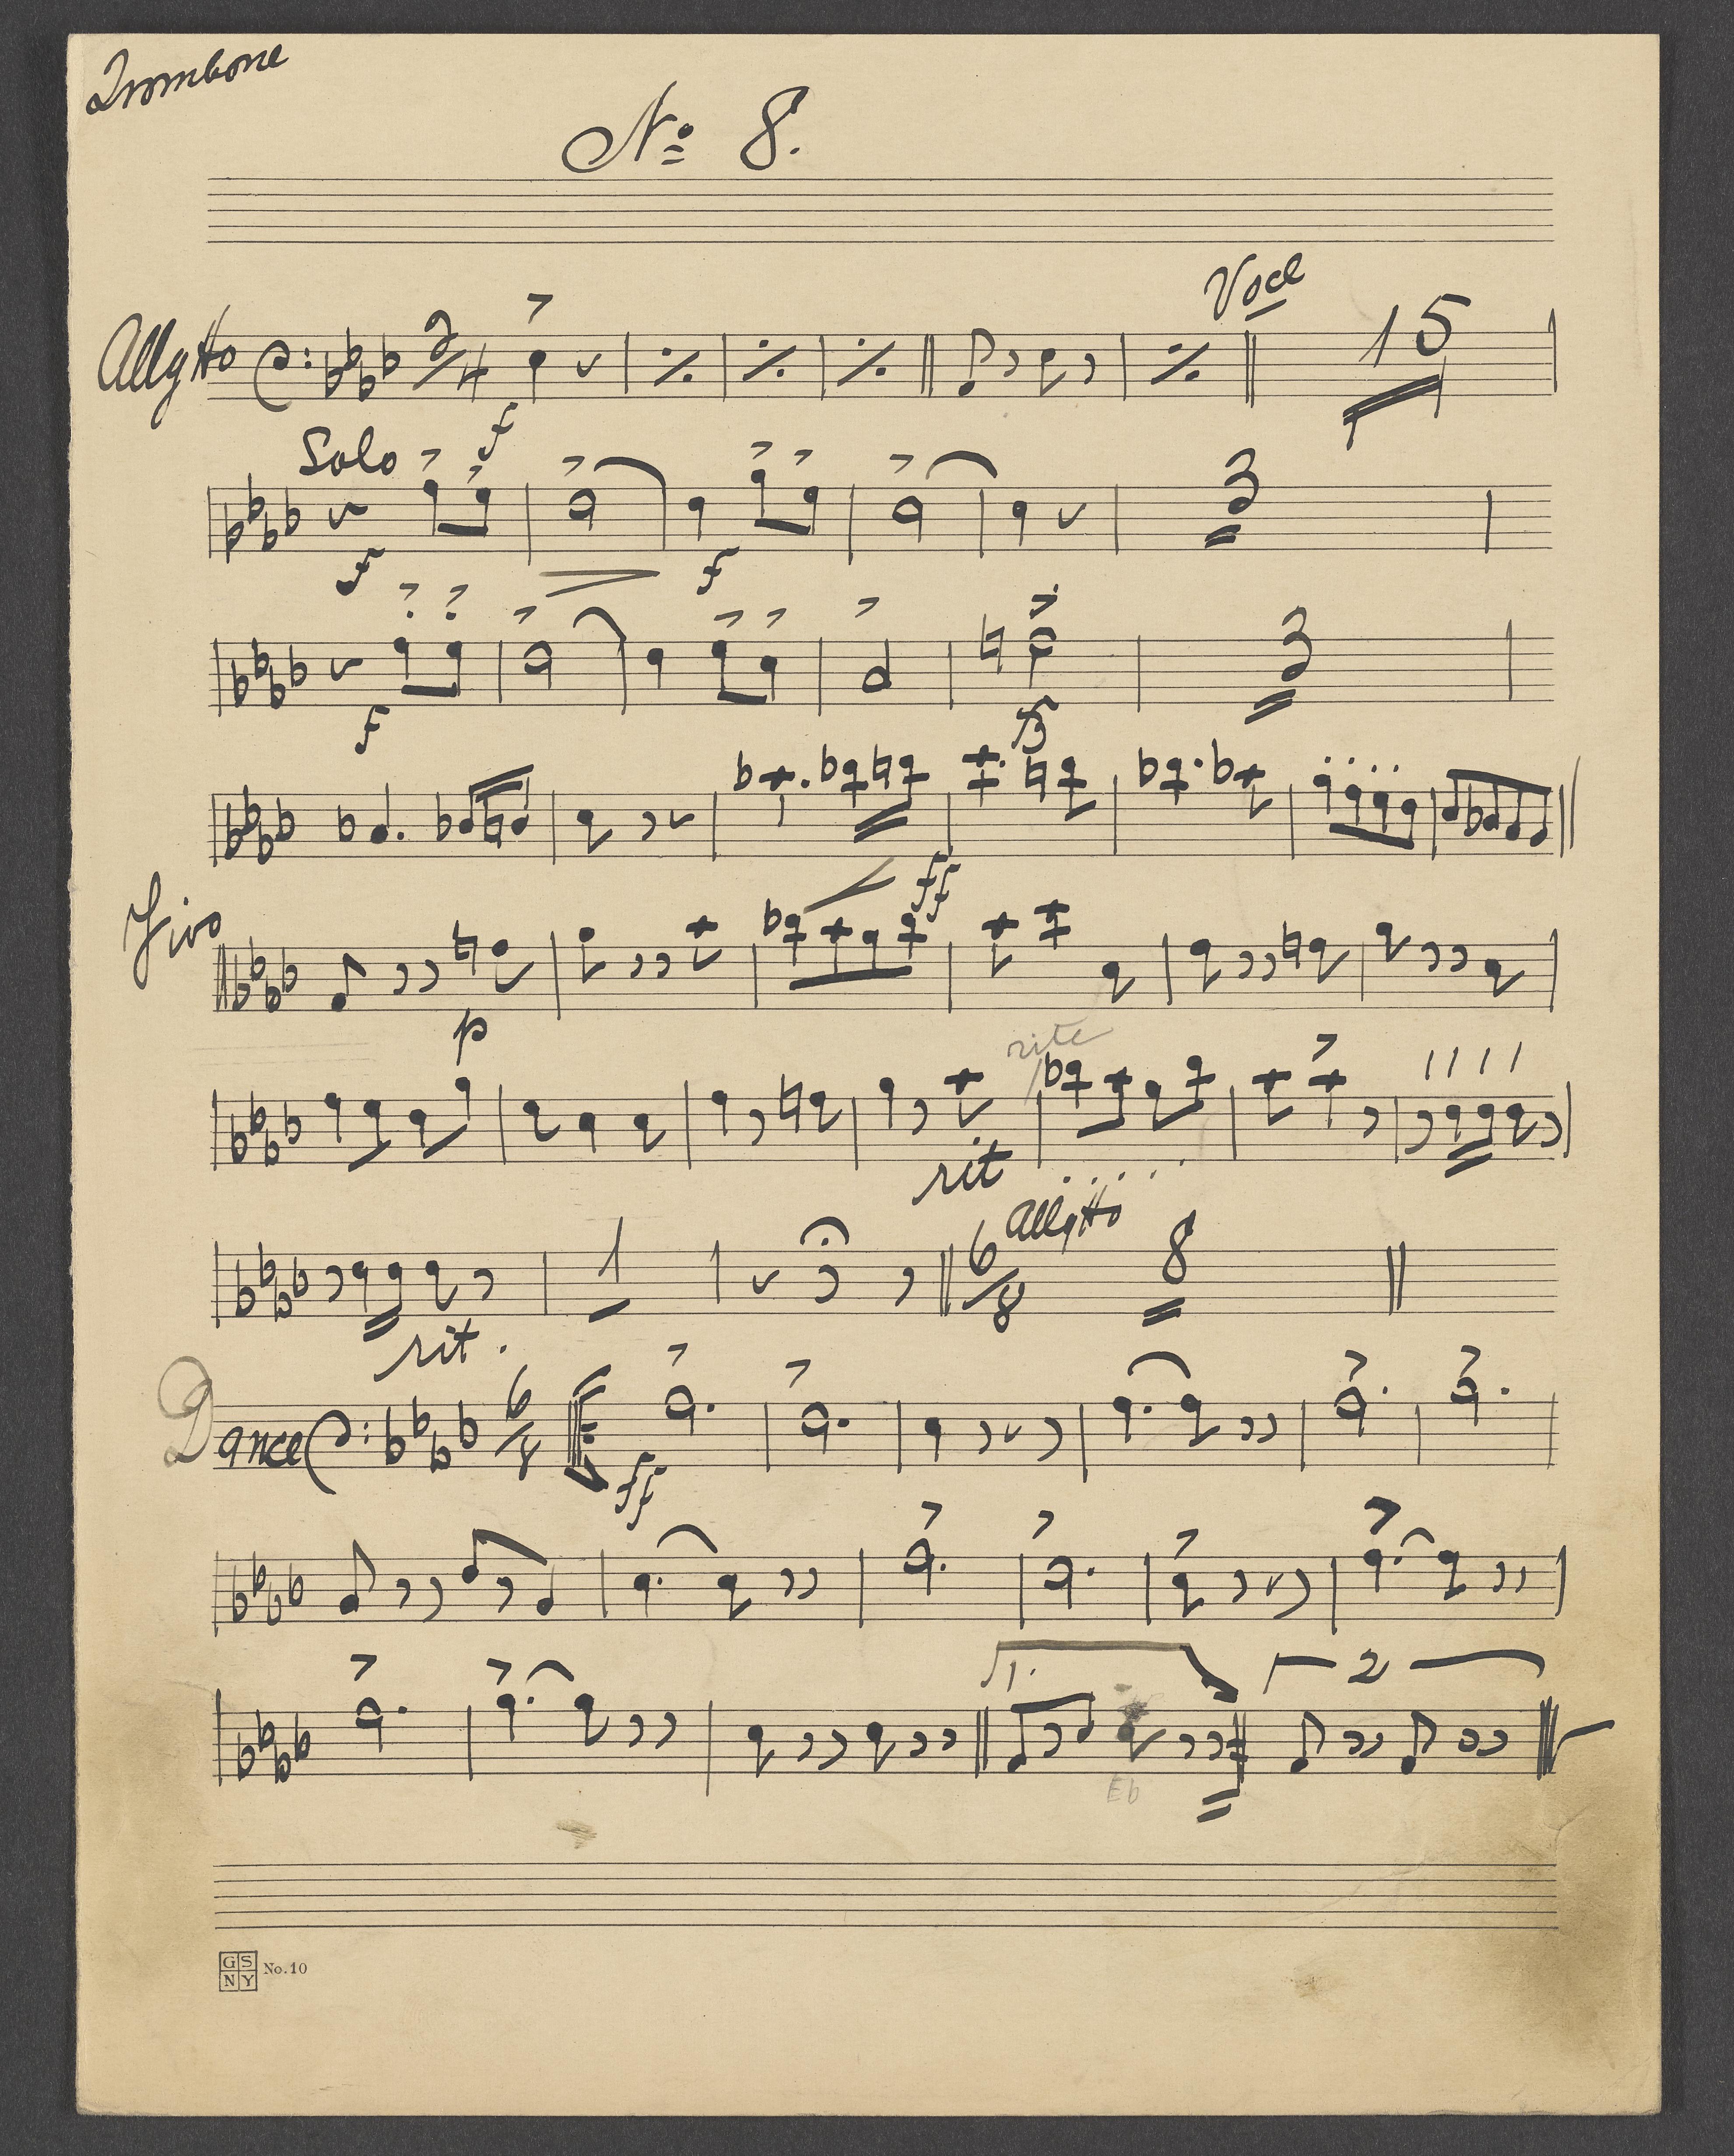 Trombone
No 8.
Voce
Allgtto 2/4 15
f
Solo
f f 3
f 3
ff
p
rite
rit
Allgtto
1 6/8 8
rit.
Dance 6/8
ff
1. 2
Eb
GS
NY No.10